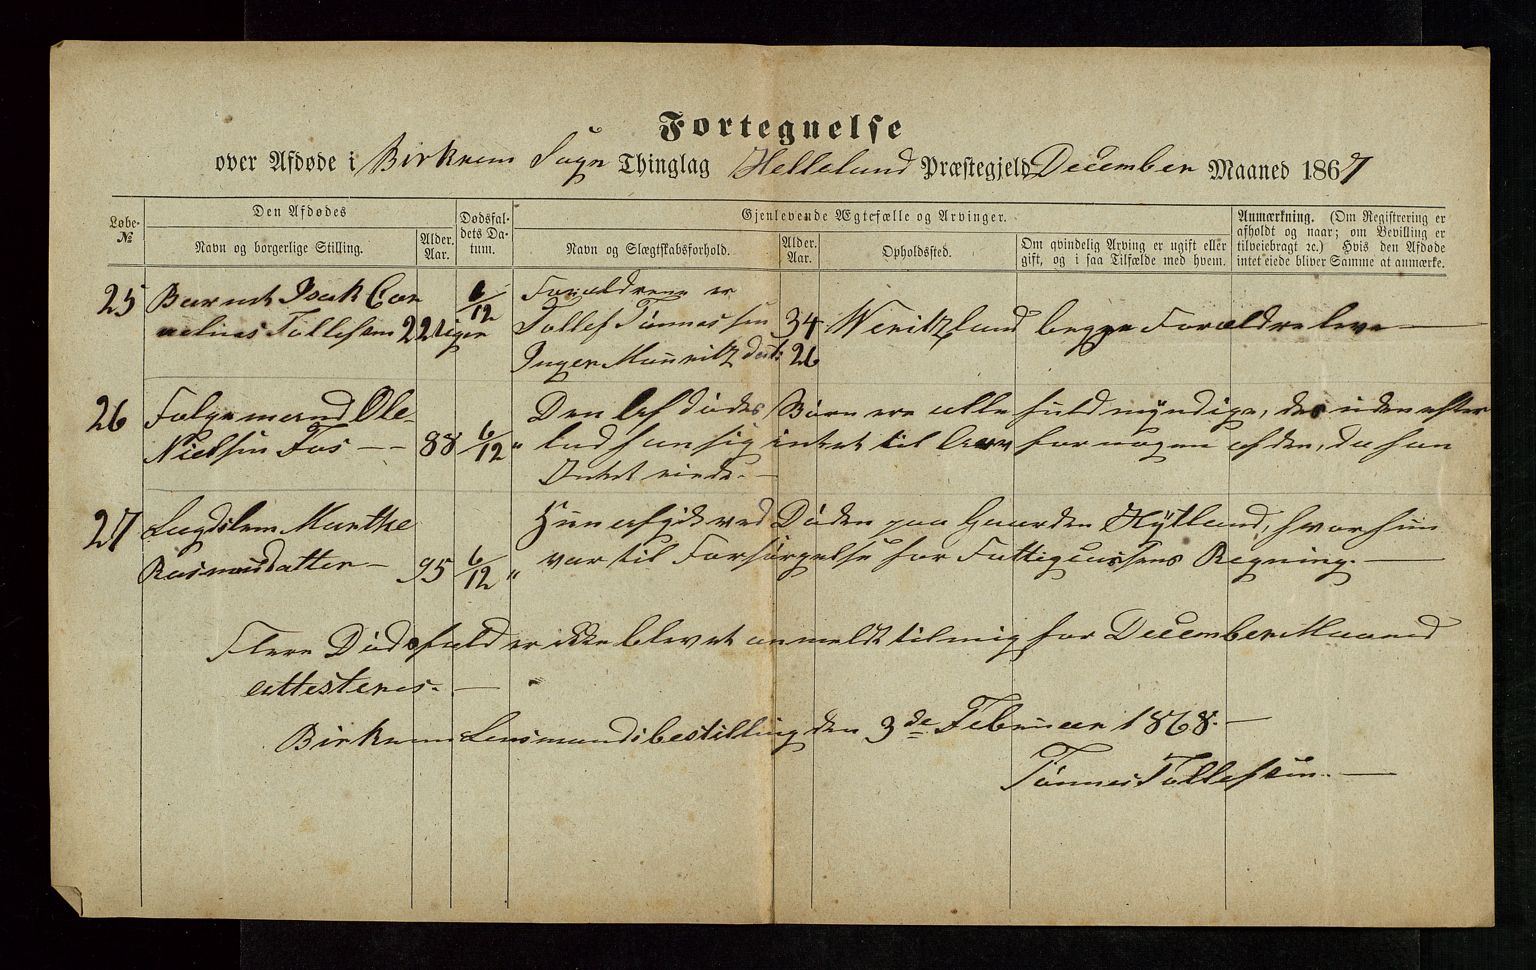 Fortegnelse
over Afdøde i Birkrem Sogn Thinglag Helleland Præstegjeld December Maaned 1867
Løbe-
№
Den Afdødes
Navn og borgerlige Stilling.
Alder.
Aar.
Dødsfal-
dets Da-
tum.
Gjenlevende Ægtefælle og Arvinger.
Navn og Slægtskabsforhold.
Alder.
Aar.
Opholdssted.
Om qvindelig Arving er ugift eller
gift, og i saa Tilfælde med hvem.
Anmærkning. (Om Registrering er
afholdt og naar; om Bevilling er
tilveiebragt ɾc.) Hvis den Afdøde
intet eiede bliver Samme at anmærke.
25 Barnet Isak Cor
nelius Tollefsen 2 Uger 6/12
Forældrene er
Tollef Tønnessen 34 Weritzland begge Forældre leve —
Inger Mauritzdat: 26
26 Folgemand Ole
Nielsen Fos — — 88 6/12 "
Den Afdødes Børn ere alle fuldmyndige, desuden efter
lod han sig intet til Arv for nogen af dem, da han
Intet eiede. —
27 Lægdslem Marthe
Rasmusdatter — 95 6/12 "
Hun afgik ved Døden paa Gaarden Hytland, hvor hun
var til Forsørgelse for Fattigcassens Regning. —
Flere Dødsfald er ikke blevet anmeldt til mig for December Maaned
attesteres. —
Birkrem Lensmandsbestilling den 3de Februar 1868. —
Tønnes Tollefsen. —